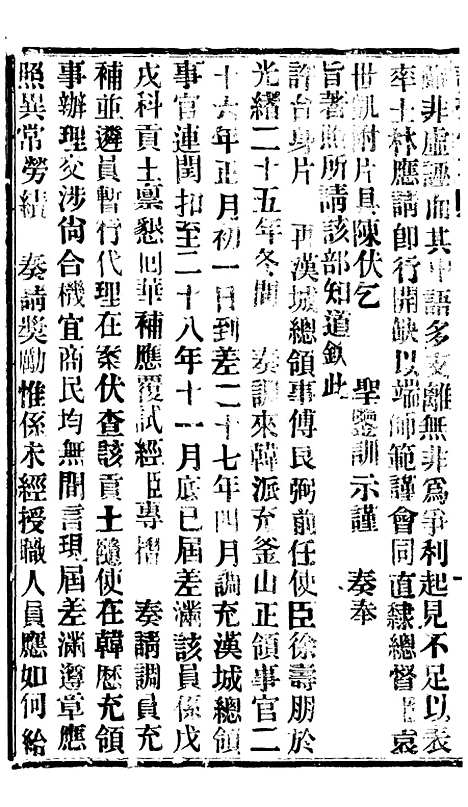 非虛誣而其中語多支離無非爲爭利起見不足以表
率士林應請即行開缺以端師範謹會同直隸總督臣袁
世凱附片具陳伏乞　聖鑒訓示謹　奏奉
旨著照所請該部知道欽此
許台身片　再漢城總領事傅良弼前任使臣徐壽朋於
光緒二十五年冬間　奏調來韓派充釜山正領事官二
十六年正月初一日到差二十七年四月調充漢城總領
事官連閏扣至二十八年十一月底已屆差滿該員係戊
戌科貢士稟懇回華補應覆試經臣專摺　奏請調員充
補並遴員暫行代理在案伏查該貢士隨使在韓歷充領
事辦理交涉尙合機宜商民均無閒言現屆差滿遵章應
照異常勞績　奏請奬勵惟係未經授職人員應如何給